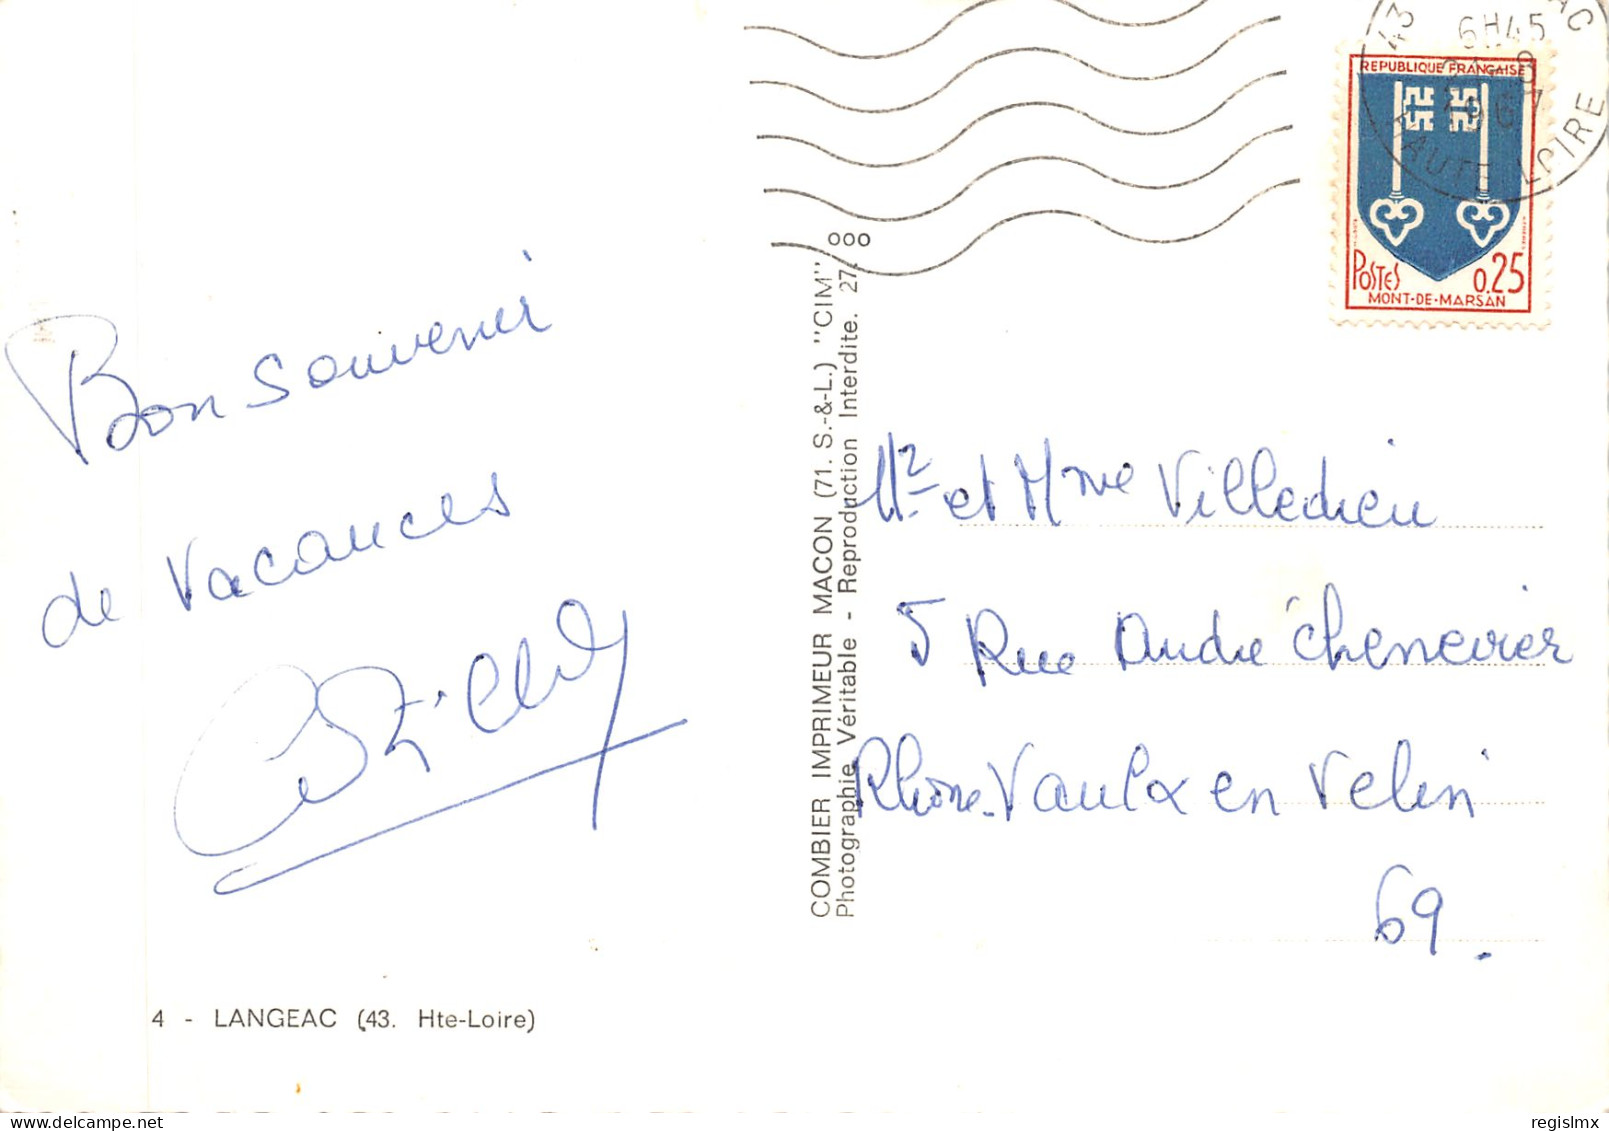 Bon souvenir
de vacances
4 - LANGEAC (43. Hte-Loire)
COMBIER IMPRIMEUR MACON (71. S.-&-L.) "CIM"
Photographie Véritable - Reproduction Interdite. 27. 000
43 AC
6H45
1967
HAUTE LOIRE
REPUBLIQUE FRANÇAISE
POSTES 0.25
MONT-DE-MARSAN
Mr et Mme Villedieu
5 Rue André Chenevier
Rhône-Vaulx en Velin
69.
regislmx